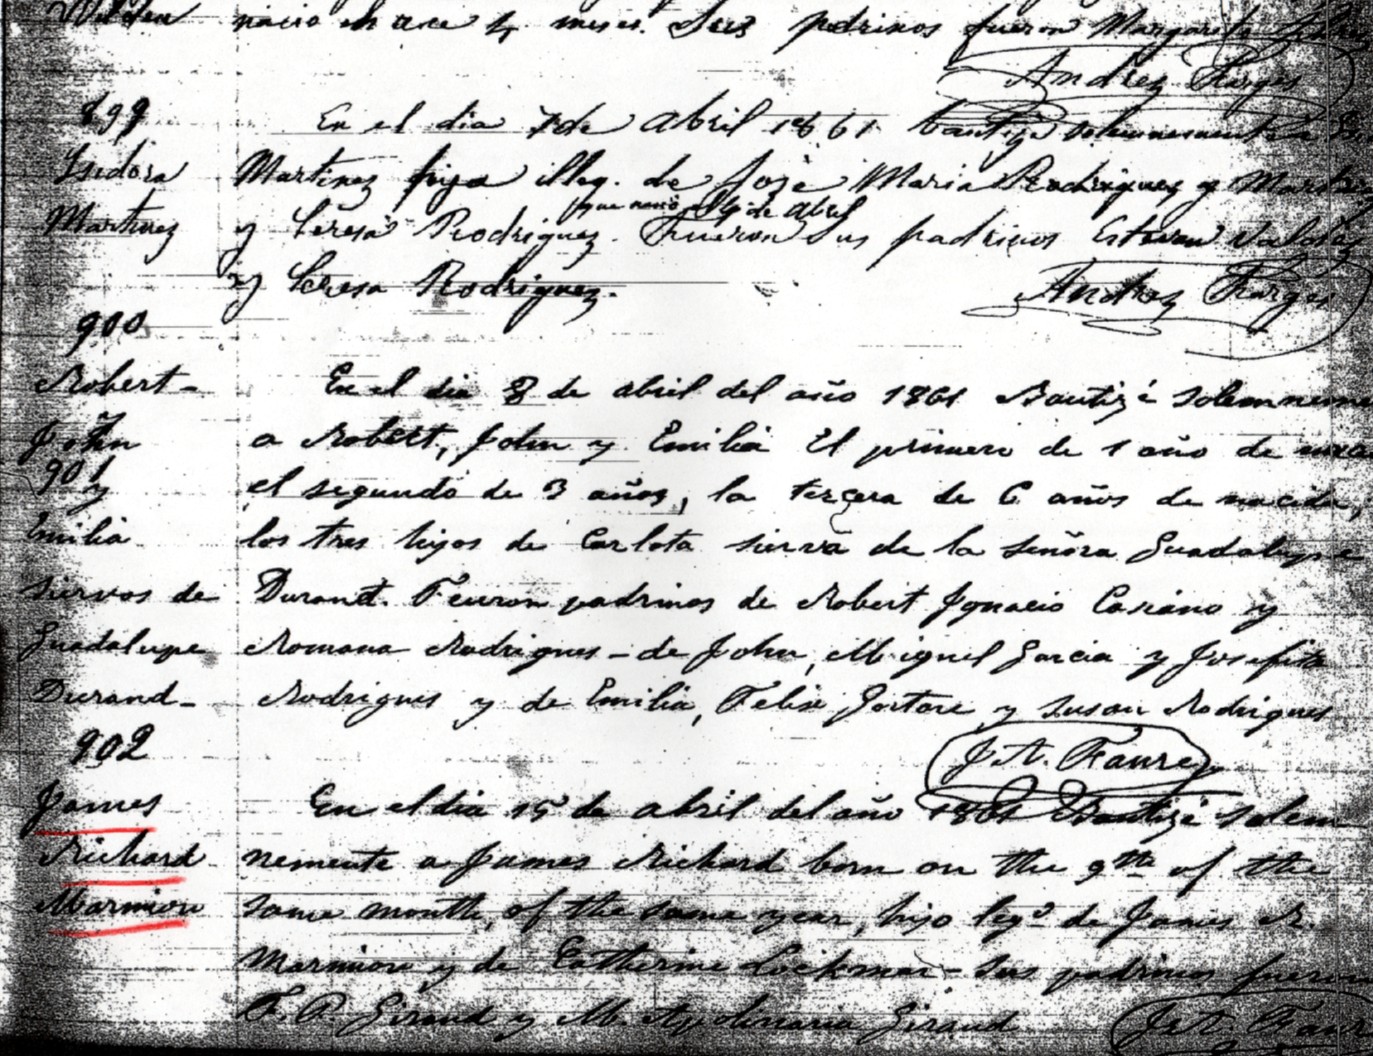 nacio en ace 4 meses. Sus padrinos fueron Margarita
Andrez Farges
899
En el dia 7 de Abril 1861 bautizé solemnemente a
Isidora
Martinez hija illeg. de Jose Maria Rodriguez y
que nacio el 4 de Abril
Martinez
y Teresa Rodriguez. Fueron Sus padrinos Estevan
y Teresa Rodriguez.
Andrez Farges
900
Robert-
En el dia 8 de abril del año 1861 Bautizé solemneme
John
a Robert, John y Emilia El primero de 1 año de
901
y
el segundo de 3 años, la terçera de 6 años de nacida,
Emilia
los tres hijos de Carlota sierva de la señora Guadalupe
siervos de
Durand. Feuron padrinos de Robert Ignacio Casiano y
Guadalupe
Romana Rodrigues - de John, Miguel Garcia y Josefita
Durand-
Rodrigues y de Emilia, Felix y Susan Rodrigues
902
J. A. Faure
James
En el dia 15 de abril del año 1861 Bautizé solem
Richard
nemente a James Richard born on the 9th of the
Marmion
same month, of the same year, hijo leg. de James R.
Marmion y de Catherine Lockmar - sus padrinos fueron
F. P. Giraud y M. Apolinaria Giraud
J. A. Faur